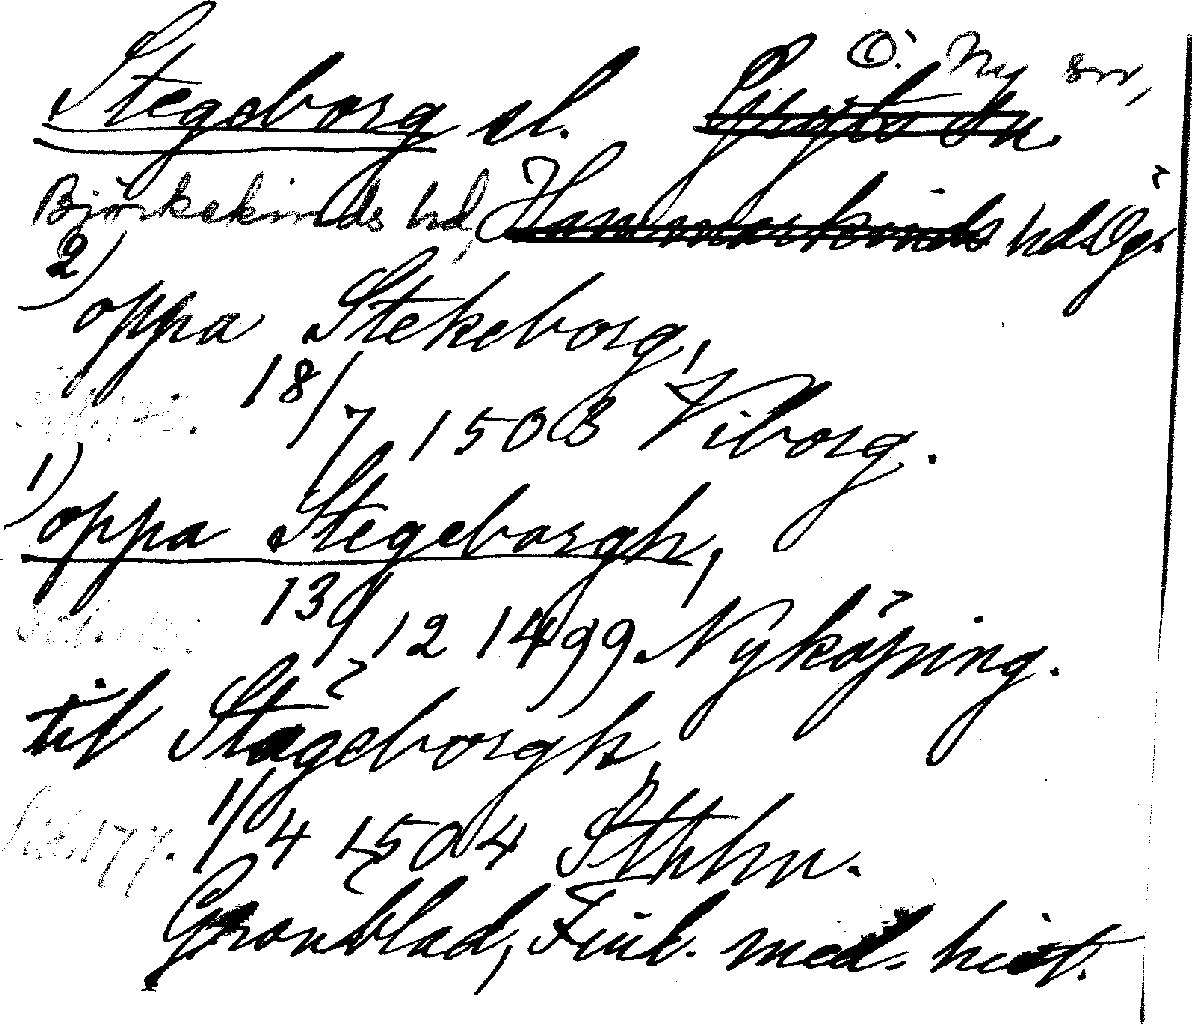 Ö. Ny sn,
Stegeborg sl.
Björkekinds hd, Hammarkinds hd Ög.
2)
oppa Stekeborg,
18/7 1508 Viborg.
1)
oppa Stegeborgh,
13/12 1499. Nyköping.
til Stägeborgh,
Sid. 177. 1/4 1504 Sthlm.
Grönblad, Finl. med. hist.